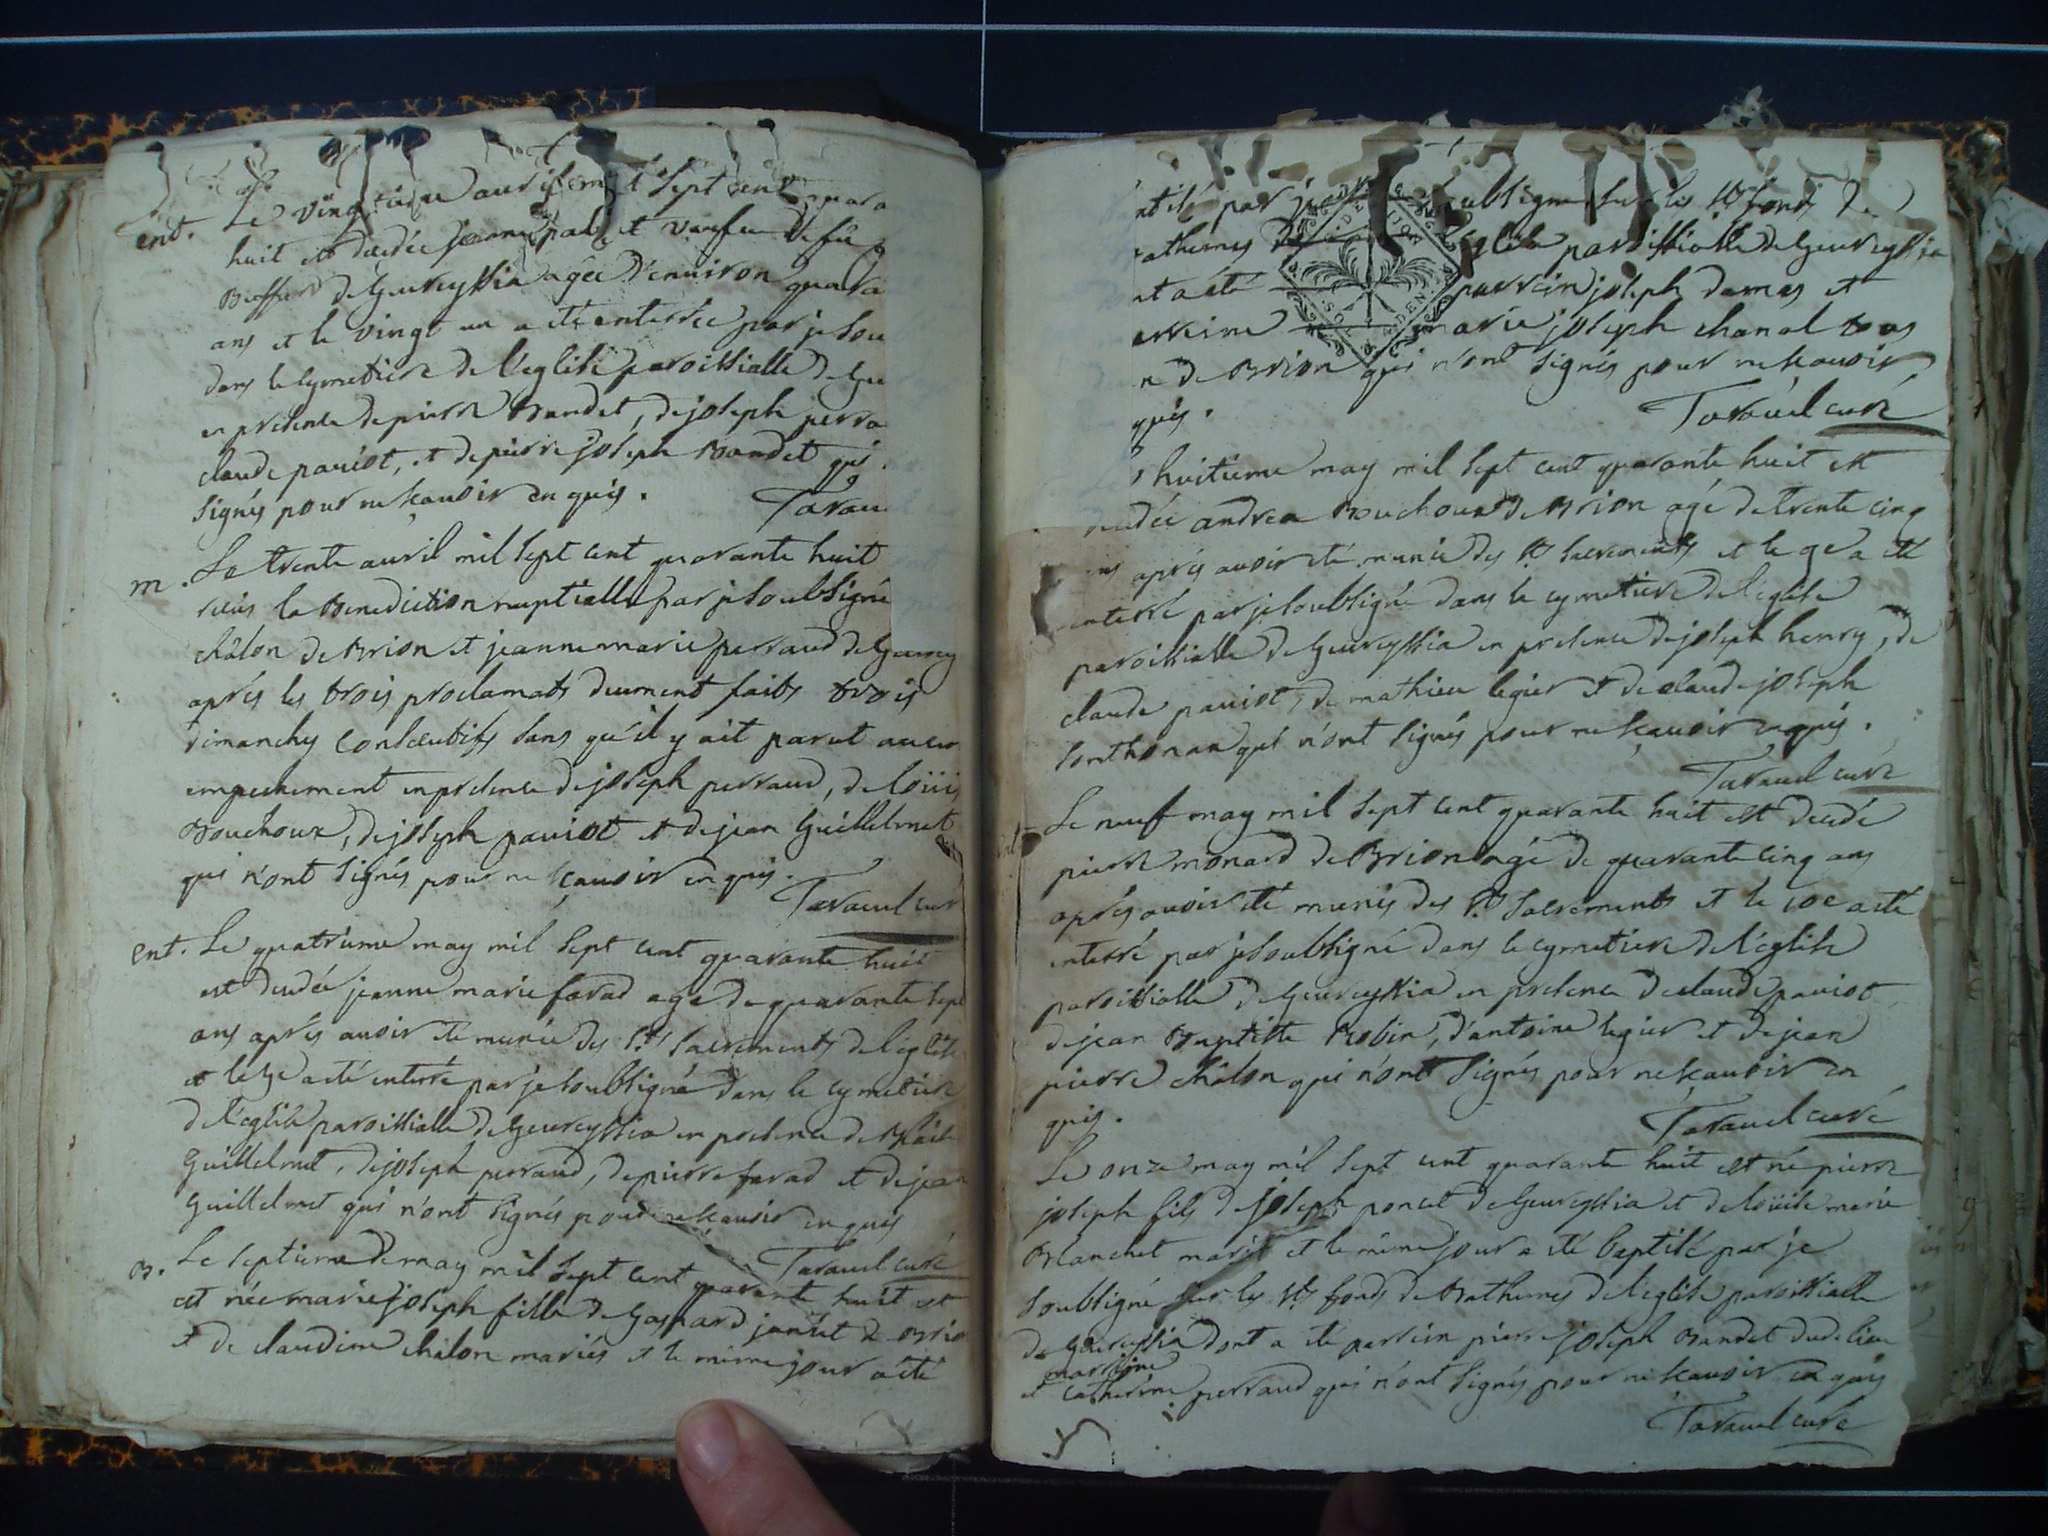 ent. Le vingtieme auril mil sept cent quara
huit est decedée jeanne vaufue de fû
Beoffard de Geureyssia agée d'enuiron quara
ans et le vingt un a eté enterrée par je sou
dans le cymetiere de l'eglise paroissialle de Geu
en presence de pierre Bandet, de joseph perra
claude pauiot, et de pierre joseph Bandet qui
signés pour ne scauoir en quis.
Tarau
m. Le trente auril mil sept cent quarante huit
reçus la Benediction nuptialle par je soubsigné
châlon de Brion et jeanne marie perraud de Geurey
aprés les trois proclamats duement faits trois
dimanches consecutifs sans qu'il y ait parut aucun
empechement en presence de joseph perraud, de loüis
Bouchoux, de joseph pauiot et de jean Guillelmet
qui n'ont signés pour ne scauoir en quis.
Tarauel cur
ent. Le quatrieme may mil sept cent quarante huit
est decedée jeanne marie farad agé de quarante sept
ans aprés auoir eté munie des Sts sacrements de l'eglise
et le 5e a eté enterré par je soubsigné dans le cymetiere
de l'eglise paroissialle de Geureyssia en presence de Blaise
Guillelmet, de joseph perraud, de pierre farad et de jean
Guillelmet qui n'ont signés pour ne scauoir en quis
Tarauel curé
B. Le septieme de may mil sept cent quarante huit est
est née marie joseph fille de Gaspard janet de Brion
et de claudine châlon mariés et le même jour a eté
ptisé par je soubsigné sur les Sts fonds de
athemes de l'eglise paroissialle de Geureyssia
nt a eté parrein joseph damas et
arreine marie joseph chanal tous
x de Brion qui n'ont signés pour ne scauoir
quis.
Tarauel curé
huitieme may mil sept cent quarante huit est
decedée andrea Bouchoux de Brion agé de trente cinq
ans aprés auoir eté munie des Sts sacrements et le 9e a eté
enterré par je soubsigné dans le cymetiere de l'eglise
paroissialle de Geureyssia en presence de joseph henry, de
claude pauiot, de mathieu legier et de claude joseph
sonthonax qui n'ont signés pour ne scauoir en quis.
Tarauel curé
Le neuf may mil sept cent quarante huit est decedé
pierre monard de Brion agé de quarante cinq ans
aprés auoir eté munis des Sts sacrements et le 10e a eté
enterré par je soubsigné dans le cymetiere de l'eglise
paroissialle de Geureyssia en presence de claude pauiot
de jean Baptiste Robin, d'antoine legier et de jean
pierre châlon qui n'ont signés pour ne scauoir en
quis.
Tarauel curé
Le onze may mil sept cent quarante huit est né pierre
joseph fils de joseph poncet de Geureyssia et de loüise marie
Blanchet mariés et le même jour a eté baptisé par je
soubsigné sur les Sts fonds de Bathemes de l'eglise paroissialle
de Geureyssia dont a eté parrein pierre joseph Bandet dudt lieu
marreine
et catherine perraud qui n'ont signés pour ne scauoir en quis
Tarauel curé